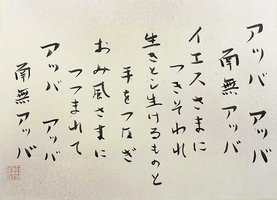 アッバ アッバ
南無アッバ
イエスさまに
つきそわれ
生きとし生けるものと
手をつなぎ
おみ風さまに
つつまれて
アッバ アッバ
南無アッバ